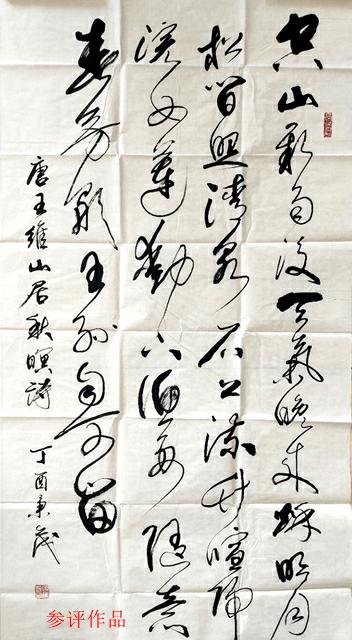 空山新雨後天氣晚来秋明月
松間照清泉石上流竹喧歸
浣女蓮動下漁舟隨意
春芳歇王孫自可留
唐王維山居秋暝詩 丁酉
参评作品